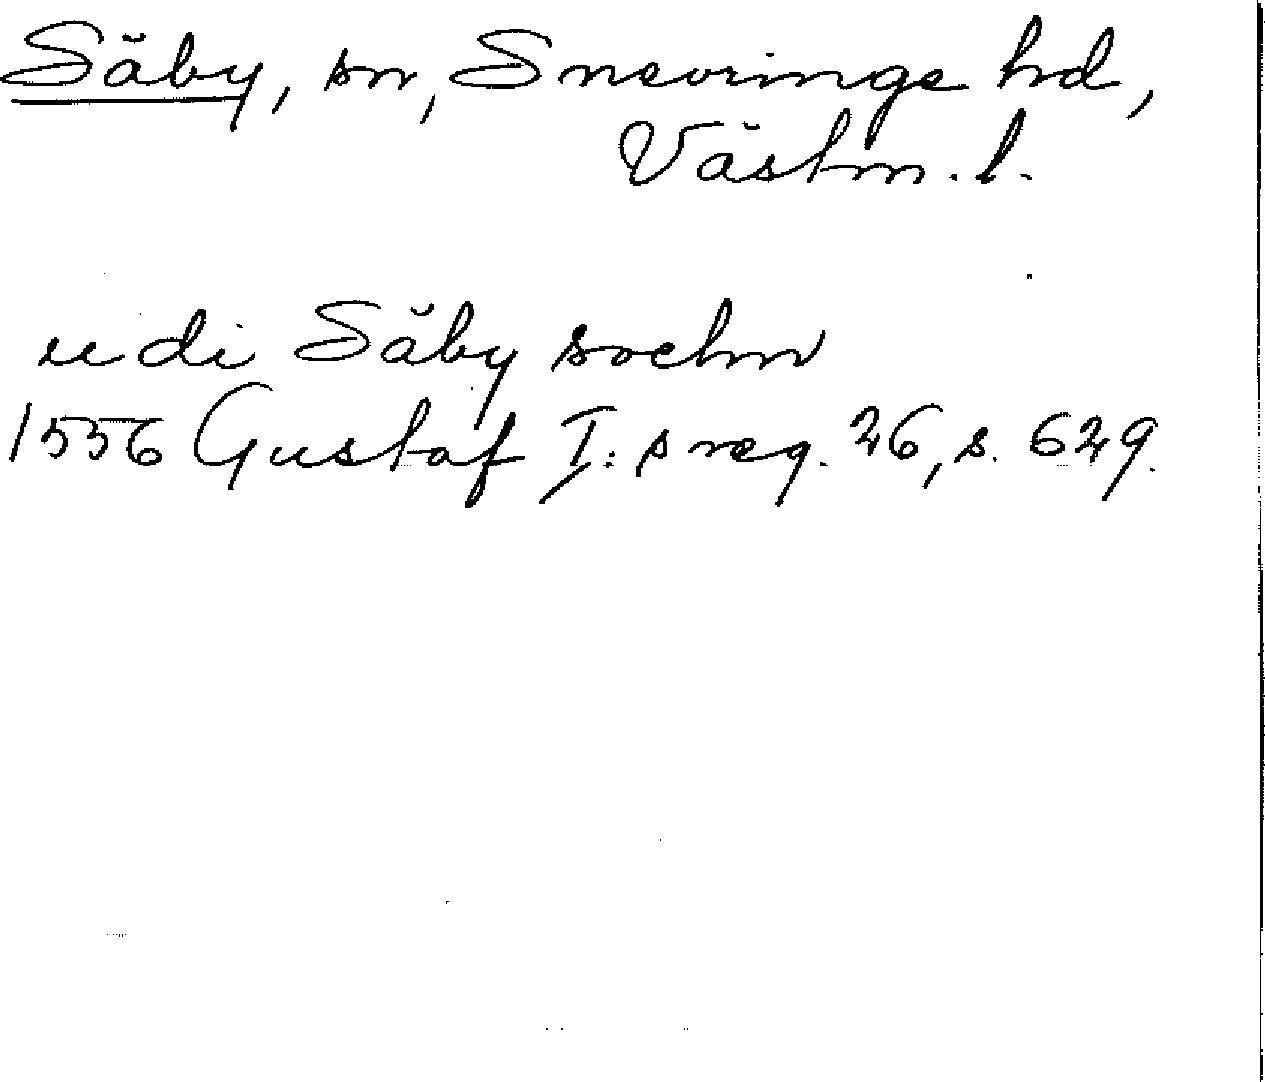 Säby, sn, Snevringe hd,
Västm. l.
udi Säby sochn
1556 Gustaf I:s reg. 26, s. 629.